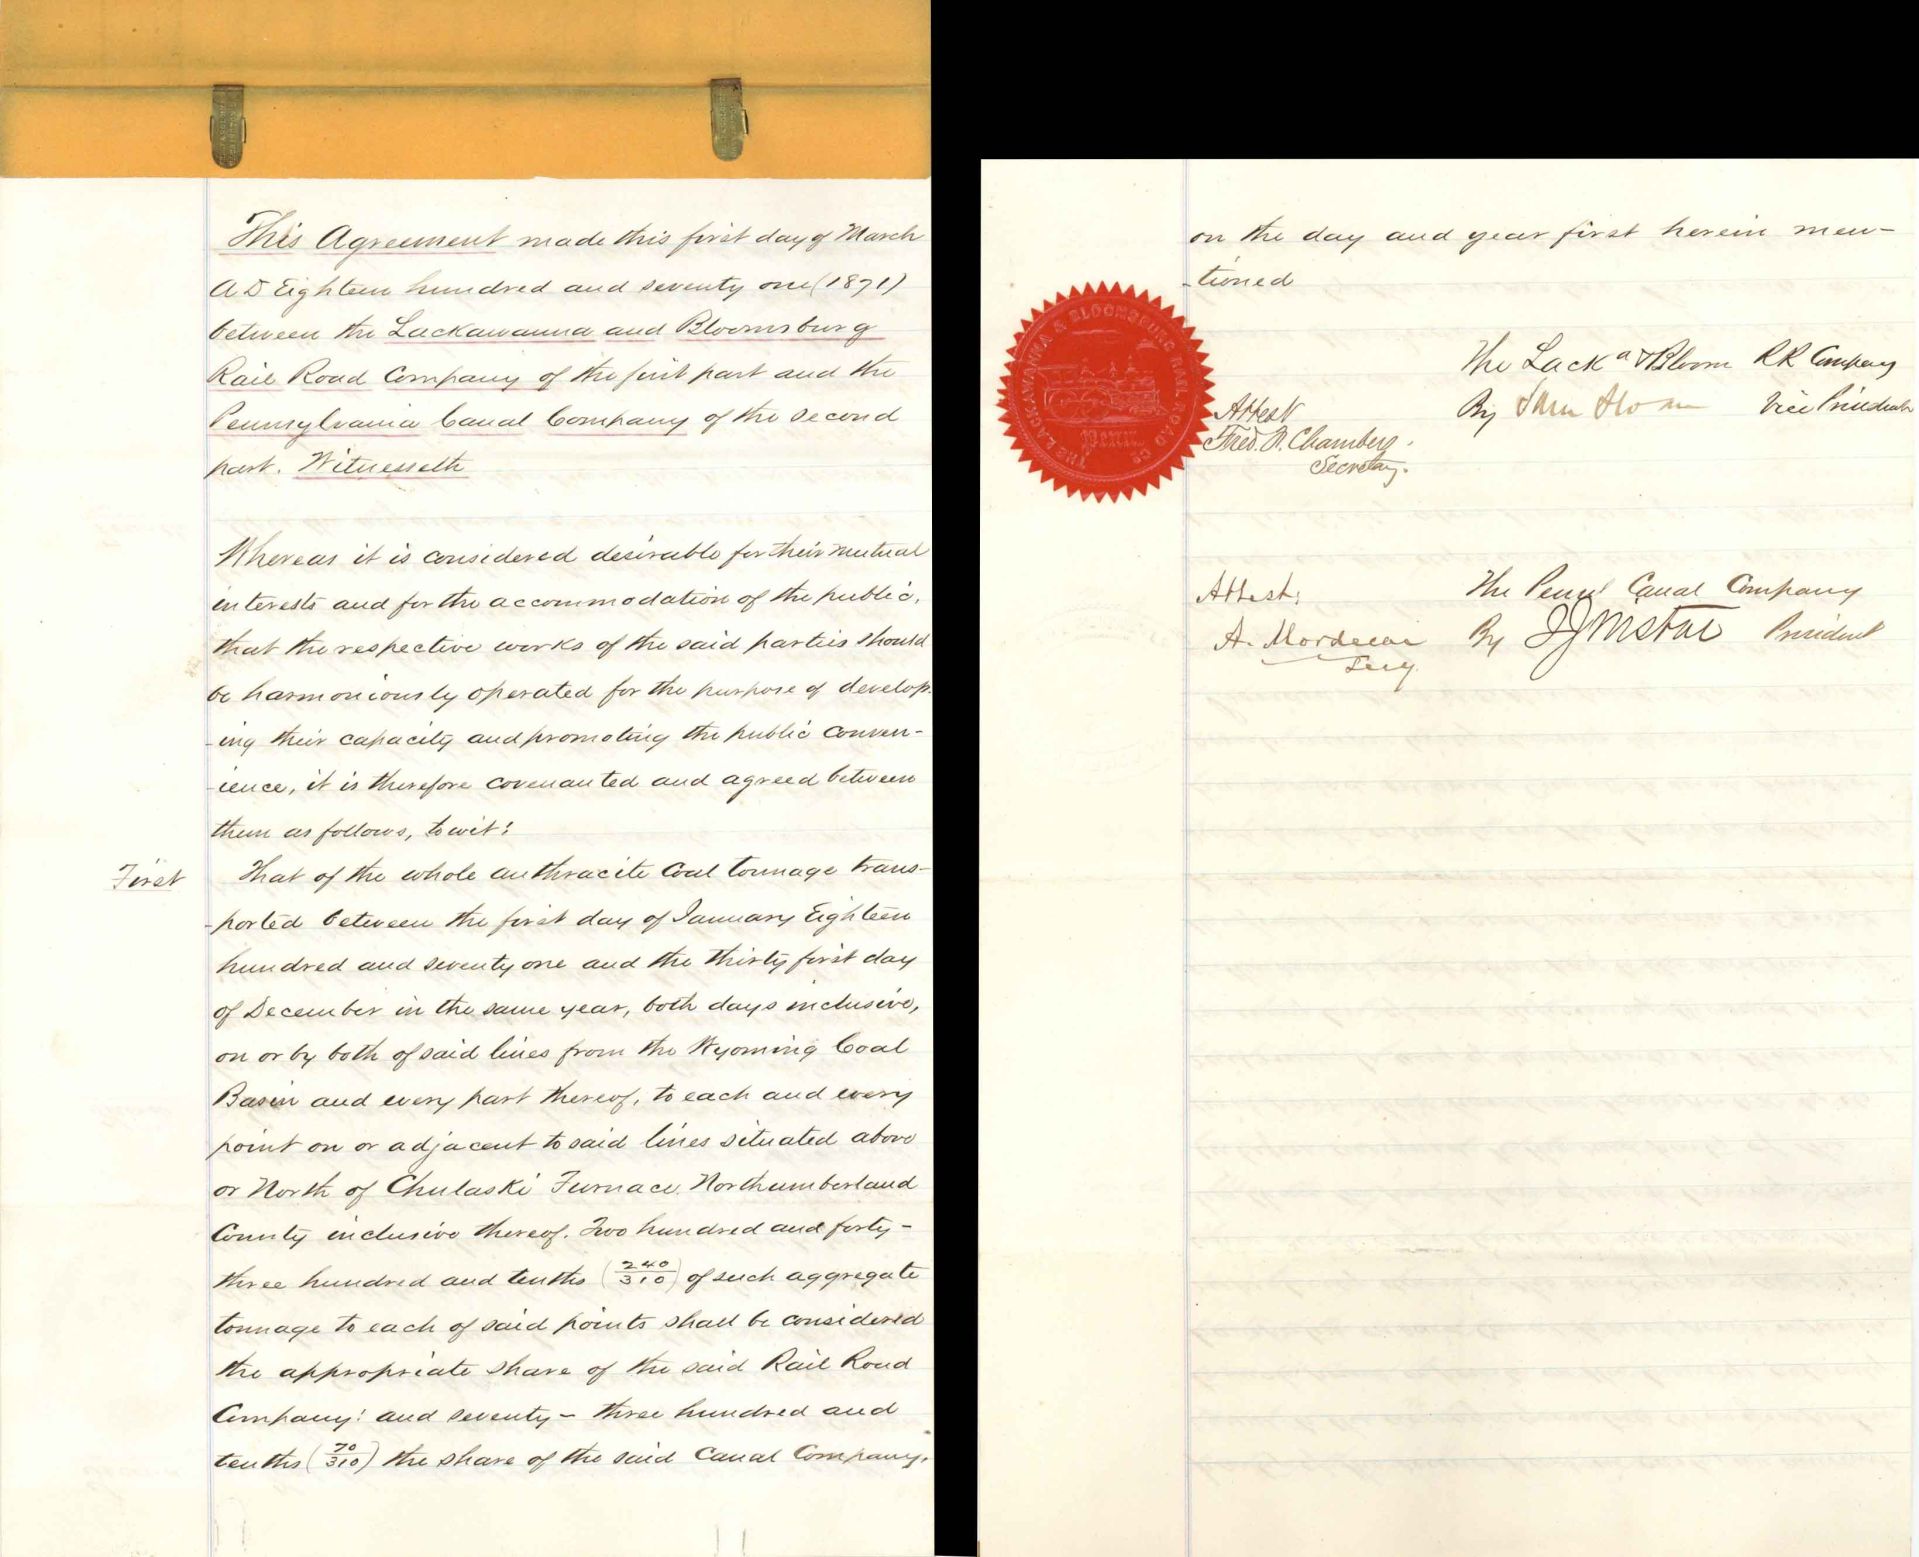 This Agreement made this first day of March
A D Eighteen hundred and seventy one (1871)
between the Lackawanna and Bloomsburg
Rail Road Company of the first part and the
Pennsylvania Canal Company of the second
part. Witnesseth
Whereas it is considered desirable for their mutual
interests and for the accommodation of the public,
that the respective works of the said parties should
be harmoniously operated for the purpose of develop-
-ing their capacity and promoting the public conven-
-ience, it is therefore covenanted and agreed between
them as follows, to wit:
First That of the whole anthracite Coal tonnage trans-
-ported between the first day of January Eighteen
hundred and seventy one and the thirty first day
of December in the same year, both days inclusive,
on or by both of said lines from the Wyoming Coal
Basin and every part thereof, to each and every
point on or adjacent to said lines situated above
or North of Chulaski Furnace, Northumberland
County inclusive thereof. Two hundred and forty-
three hundred and tenths (240/310) of such aggregate
tonnage to each of said points shall be considered
the appropriate share of the said Rail Road
Company: and seventy - three hundred and
tenths (70/310) the share of the said Canal Company.
on the day and year first herein men-
-tioned
THE LACKAWANNA & BLOOMSBURG RAIL ROAD Co.
PENN.
The Lack a & Bloom RR Company
Attest
By Sam Sloan Vice President
Fred. F. Chambers.
Secretary.
Attest: The Penna Canal Company
A. Mordecai By President
Secy.